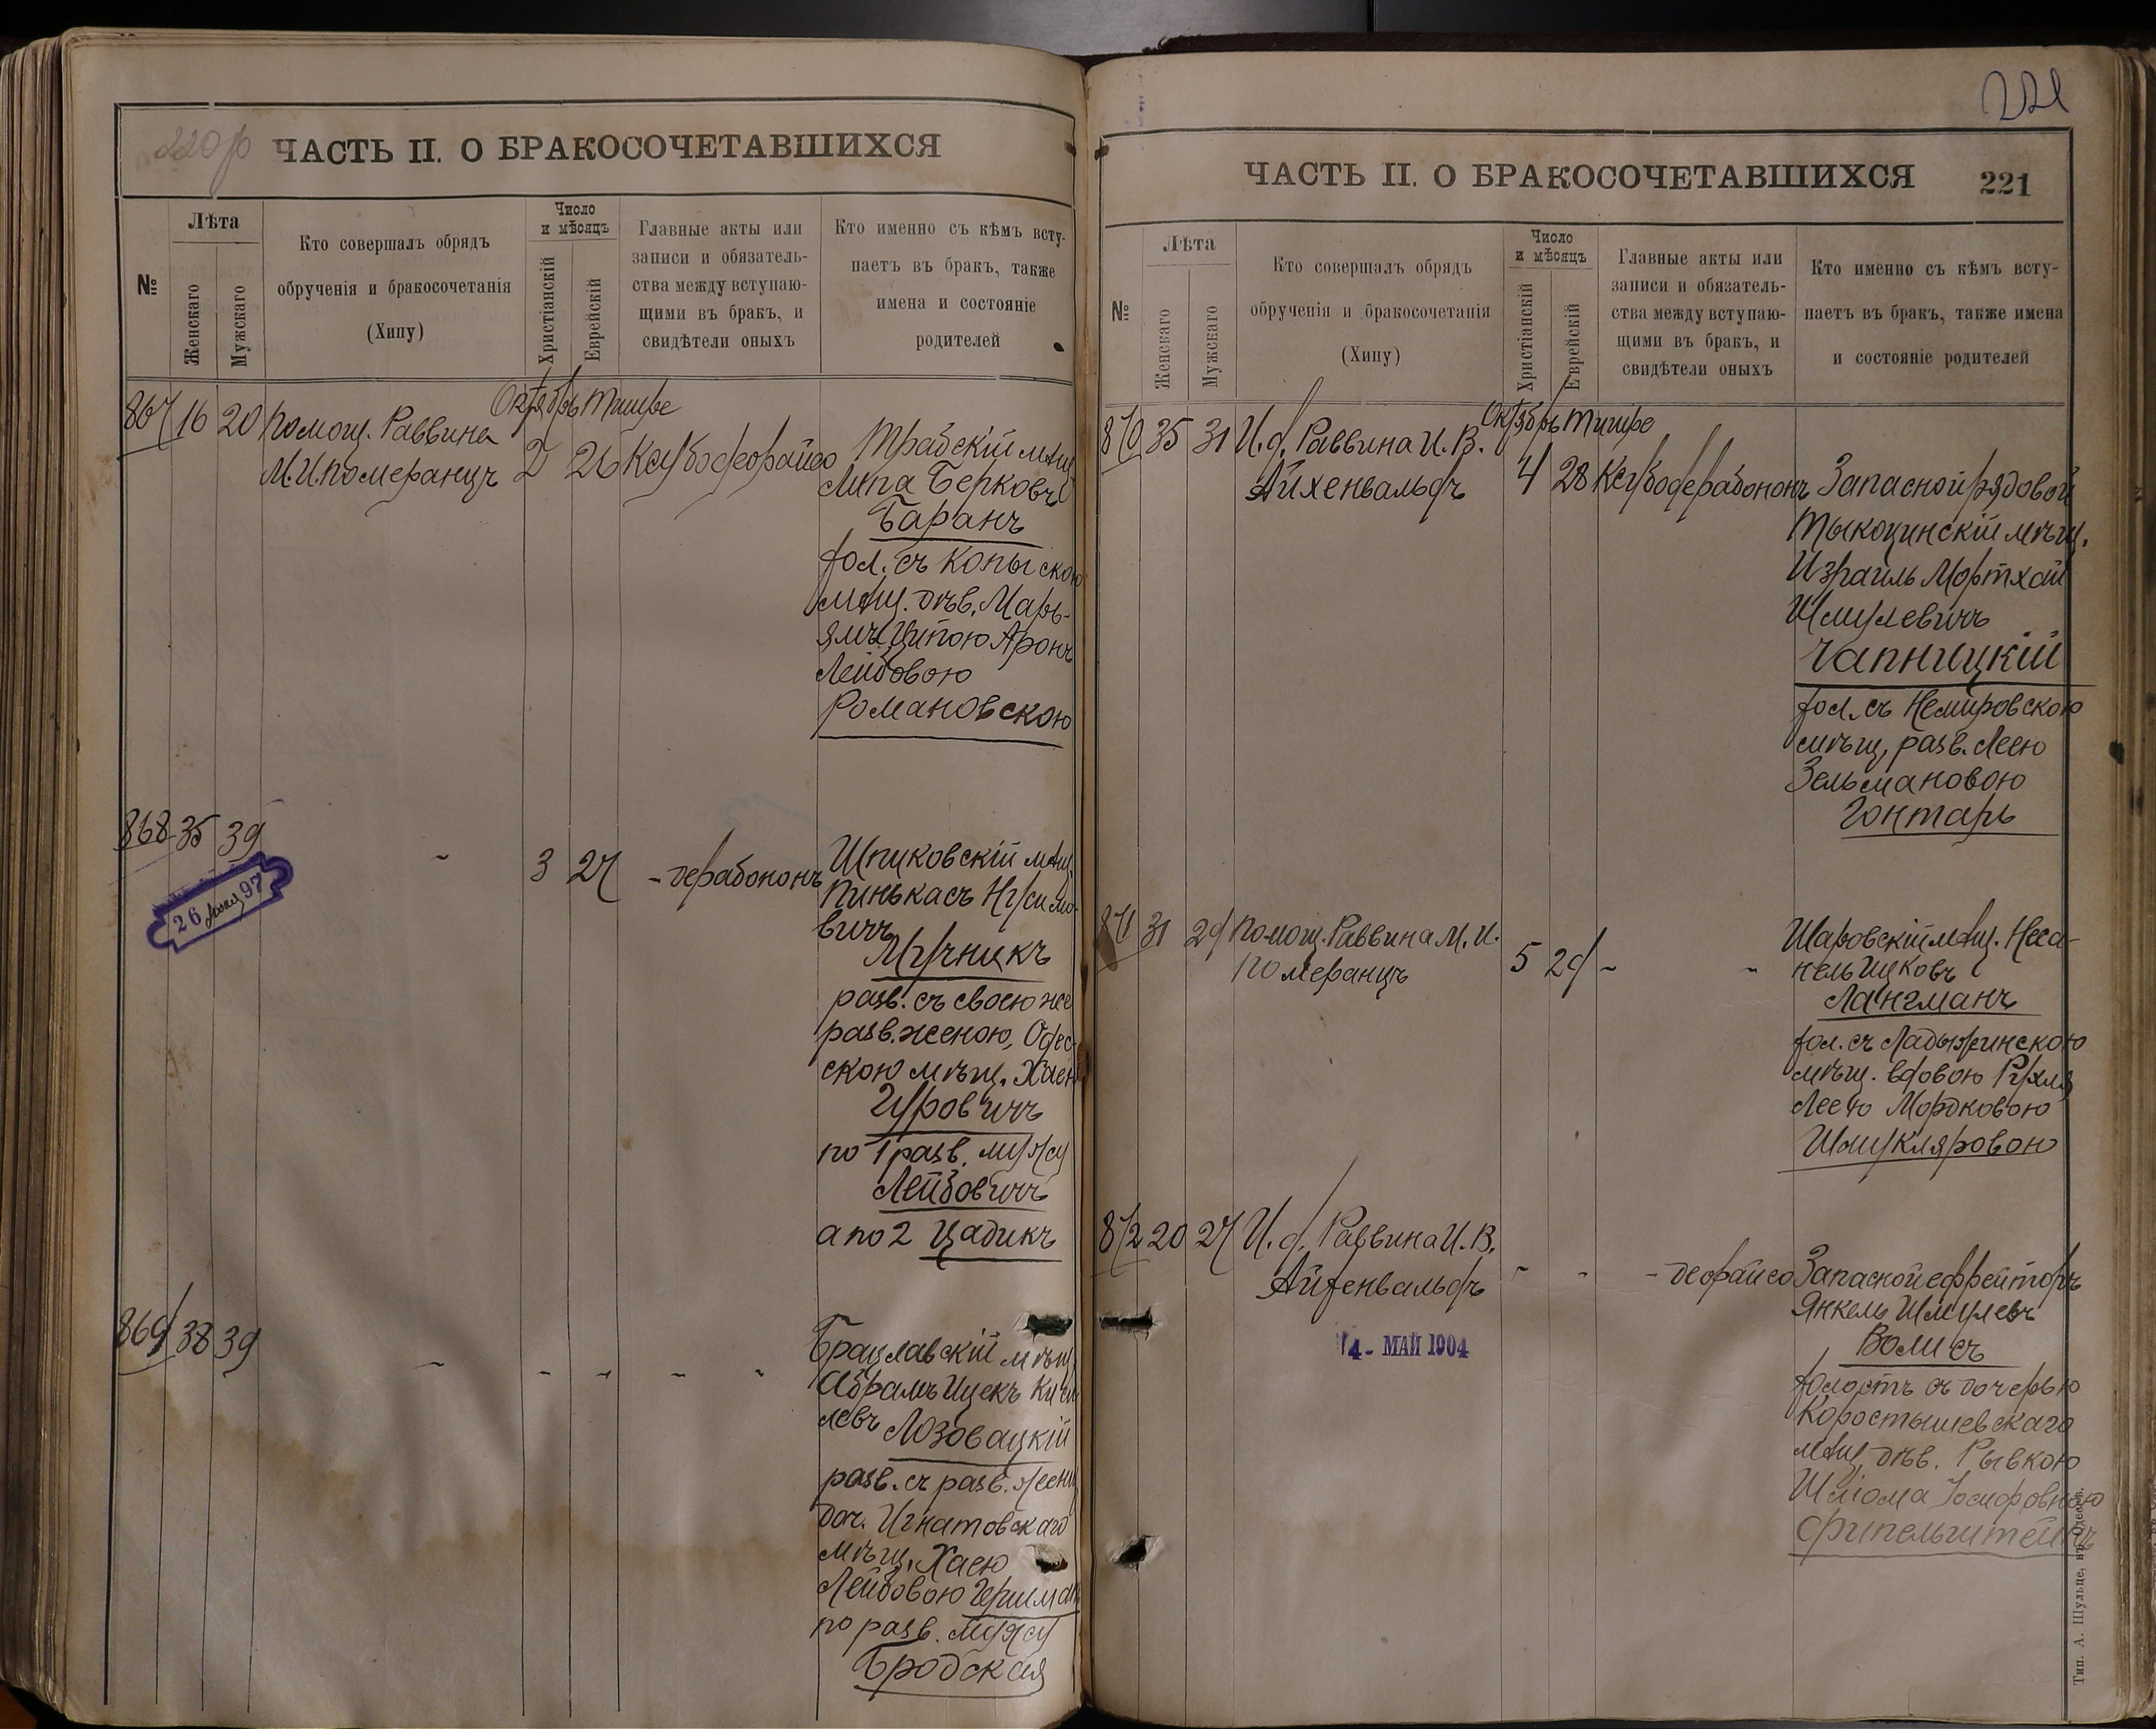 220 р
ЧАСТЬ II. О БРАКОСОЧЕТАВШИХСЯ
№
Лѣта
Женскаго
Мужскаго
Кто совершалъ обрядъ
обрученія и бракосочетанія
(Хипу)
Число
и мѣсяцъ
Христіанскій
Еврейскій
Главные акты или
записи и обязатель-
ства между вступаю-
щими въ бракъ, и
свидѣтели оныхъ
Кто именно съ кѣмъ всту-
паетъ въ бракъ, также
имена и состояніе
родителей
Октябрь Тишре
867 16 20 Помощ. Раввина
М. И. Померанцъ 2 26 Ксубодеорайсо
Трабскій мѣщ.
Липа Берковъ
Баранъ
хол. съ Копыскою
мѣщ. дѣв. Марь-
ямъ Ципою Аронъ
Лейбовою
Романовскою
868 35 39 - 3 27 - дерабононъ
26 97
Шпиковскій мѣщ.
Пинькасъ Нусимо-
вичъ
Мучникъ
разв. съ своею же
разв. женою, Одес-
скою мѣщ. Хаею
Гуровичъ
по 1 разв. мужу
Лейбовичъ
а по 2 Цадикъ
869 38 39 - - - - -
Брацлавскій мѣщ.
Абрамъ Ицекъ
левъ Лозовацкій
разв. съ разв. женщ.
доч. Игнатовскаго
мѣщ. Хаею
Лейбовою Гершманъ
по разв. мужу
Бродская
221
ЧАСТЬ II. О БРАКОСОЧЕТАВШИХСЯ 221
№
Лѣта
Женскаго
Мужскаго
Кто совершалъ обрядъ
обрученія и бракосочетанія
(Хипу)
Число
и мѣсяцъ
Христіанскій
Еврейскій
Главные акты или
записи и обязатель-
ства между вступаю-
щими въ бракъ, и
свидѣтели оныхъ
Кто именно съ кѣмъ всту-
паетъ въ бракъ, также имена
и состояніе родителей
Октябрь Тишре
870 35 31 И. д. Раввина И. В.
Айхенвальдъ 4 28 Ксубодерабононъ
Запасной рядовой
Тыкоцинскій мѣщ.
Израиль Мортхай
Шмулевичъ
Чапницкій
хол. съ Немировскою
мѣщ. разв. Леею
Зельмановою
Гонтарь
871 31 29 Помощ. Раввина М. И.
Померанцъ 5 29 - -
Шаровскій мѣщ. Неса-
нель Ицковъ
Лангманъ
хол. съ Ладыжинскою
мѣщ. вдовою Рухля
Леею Мордковою
Шмукляровою
872 20 27 И. д. Раввина И. В.
Айхенвальдъ - - - деорайсо
4 - МАЙ 1904
Запасной ефрейторъ
Янкель Шмулевъ
Волисъ
холостъ съ дочерью
Коростышевскаго
мѣщ. дѣв. Рывкою
Шліома Іосифовною
Фипельштейнъ
Тип. А. Шульце, въ Одессѣ.